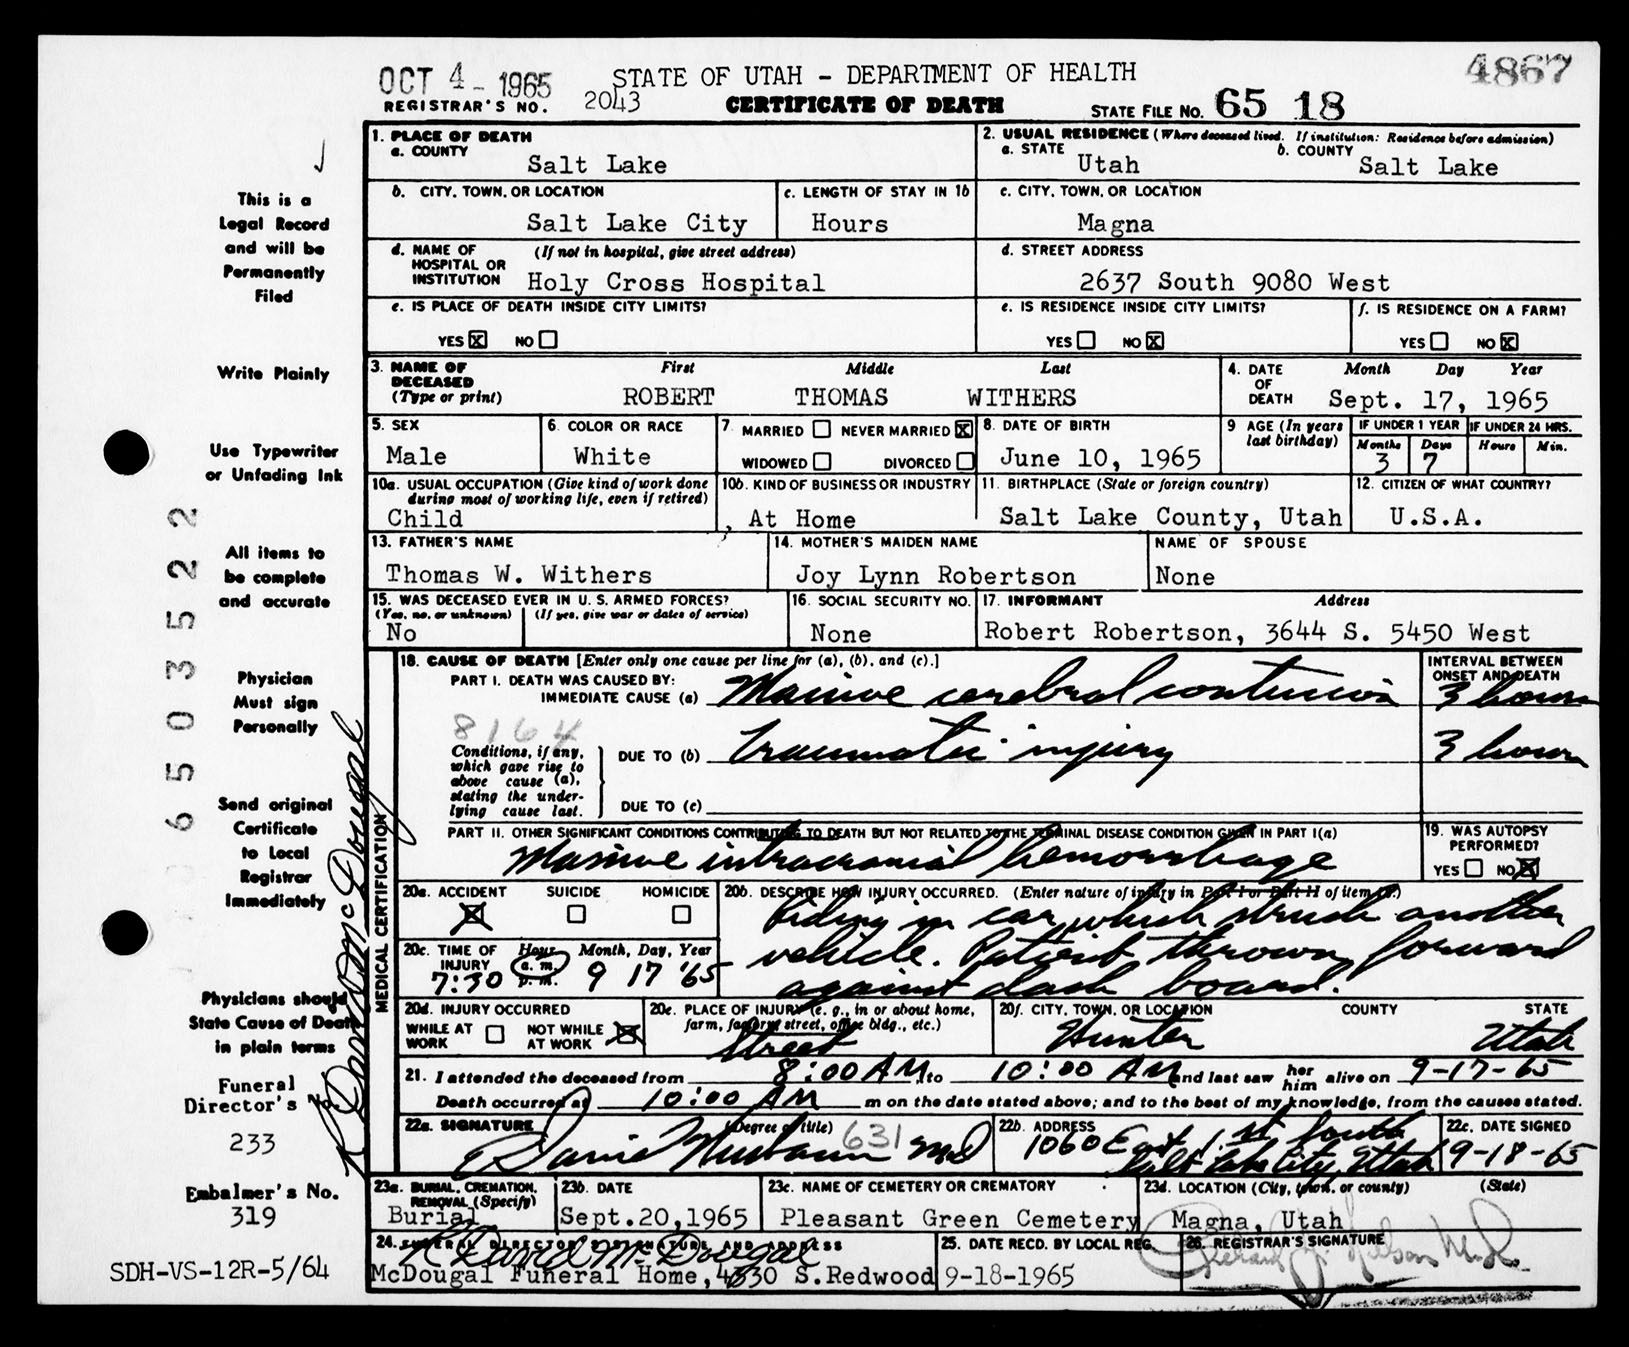 OCT 4 - 1965 STATE OF UTAH - DEPARTMENT OF HEALTH 4867
REGISTRAR'S NO. 2043 CERTIFICATE OF DEATH STATE FILE NO. 65 18
This is a
Legal Record
and will be
Permanently
Filed
Write Plainly
Use Typewriter
or Unfading Ink
All items to
be complete
and accurate
Physician
Must sign
Personally
Send original
Certificate
to Local
Registrar
Immediately
Physicians should
State Cause of Death
in plain terms
Funeral
Director's No.
233
Embalmer's No.
319
SDH-VS-12R-5/64
6503522
R David McDougal
1. PLACE OF DEATH
a. COUNTY
Salt Lake
2. USUAL RESIDENCE (Where deceased lived. If institution: Residence before admission)
a. STATE b. COUNTY
Utah Salt Lake
b. CITY, TOWN, OR LOCATION
Salt Lake City
c. LENGTH OF STAY IN 1b
Hours
c. CITY, TOWN, OR LOCATION
Magna
d. NAME OF HOSPITAL OR INSTITUTION (If not in hospital, give street address)
Holy Cross Hospital
d. STREET ADDRESS
2637 South 9080 West
e. IS PLACE OF DEATH INSIDE CITY LIMITS?
YES X NO
e. IS RESIDENCE INSIDE CITY LIMITS?
YES NO X
f. IS RESIDENCE ON A FARM?
YES NO X
3. NAME OF DECEASED (Type or print)
First Middle Last
ROBERT THOMAS WITHERS
4. DATE OF DEATH Month Day Year
Sept. 17, 1965
5. SEX
Male
6. COLOR OR RACE
White
7. MARRIED NEVER MARRIED X
WIDOWED DIVORCED
8. DATE OF BIRTH
June 10, 1965
9 AGE (In years last birthday)
IF UNDER 1 YEAR IF UNDER 24 HRS.
Months Days Hours Min.
3 7
10a. USUAL OCCUPATION (Give kind of work done during most of working life, even if retired)
Child
10b. KIND OF BUSINESS OR INDUSTRY
, At Home
11. BIRTHPLACE (State or foreign country)
Salt Lake County, Utah
12. CITIZEN OF WHAT COUNTRY?
U.S.A.
13. FATHER'S NAME
Thomas W. Withers
14. MOTHER'S MAIDEN NAME
Joy Lynn Robertson
NAME OF SPOUSE
None
15. WAS DECEASED EVER IN U. S. ARMED FORCES?
(Yes, no, or unknown) (If yes, give war or dates of service)
No
16. SOCIAL SECURITY NO.
None
17. INFORMANT Address
Robert Robertson, 3644 S. 5450 West
MEDICAL CERTIFICATION
18. CAUSE OF DEATH [Enter only one cause per line for (a), (b), and (c).]
INTERVAL BETWEEN ONSET AND DEATH
PART I. DEATH WAS CAUSED BY:
IMMEDIATE CAUSE (a) Massive cerebral contusion 3 hours
8164
Conditions, if any, which gave rise to above cause (a), stating the underlying cause last.
DUE TO (b) Traumatic injury 3 hours
DUE TO (c)
PART II. OTHER SIGNIFICANT CONDITIONS CONTRIBUTING TO DEATH BUT NOT RELATED TO THE TERMINAL DISEASE CONDITION GIVEN IN PART I(a)
Massive intracranial hemorrhage
19. WAS AUTOPSY PERFORMED?
YES NO X
20a. ACCIDENT SUICIDE HOMICIDE
X
20b. DESCRIBE HOW INJURY OCCURRED. (Enter nature of injury in Part I or Part II of item 18.)
Riding in car which struck another
vehicle. Patient thrown forward
against dash board.
20c. TIME OF INJURY Hour a. m. p. m. Month, Day, Year
7:30 9 17 '65
20d. INJURY OCCURRED
WHILE AT WORK NOT WHILE AT WORK X
20e. PLACE OF INJURY (e. g., in or about home, farm, factory, street, office bldg., etc.)
Street
20f. CITY, TOWN, OR LOCATION COUNTY STATE
Hunter Utah
21. I attended the deceased from 8:00 AM, to 10:00 AM and last saw her him alive on 9-17-65
Death occurred at 10:00 AM m on the date stated above; and to the best of my knowledge, from the causes stated.
22a. SIGNATURE (Degree or title) 631
David MD
22b. ADDRESS
1060 East 1st South
Salt Lake City, Utah
22c. DATE SIGNED
9-18-65
23a. BURIAL, CREMATION, REMOVAL (Specify)
Burial
23b. DATE
Sept.20,1965
23c. NAME OF CEMETERY OR CREMATORY
Pleasant Green Cemetery
23d. LOCATION (City, town, or county) (State)
Magna, Utah
24. FUNERAL DIRECTOR'S SIGNATURE AND ADDRESS
R David McDougal
McDougal Funeral Home, 4330 S.Redwood
25. DATE RECD. BY LOCAL REG.
9-18-1965
26. REGISTRAR'S SIGNATURE